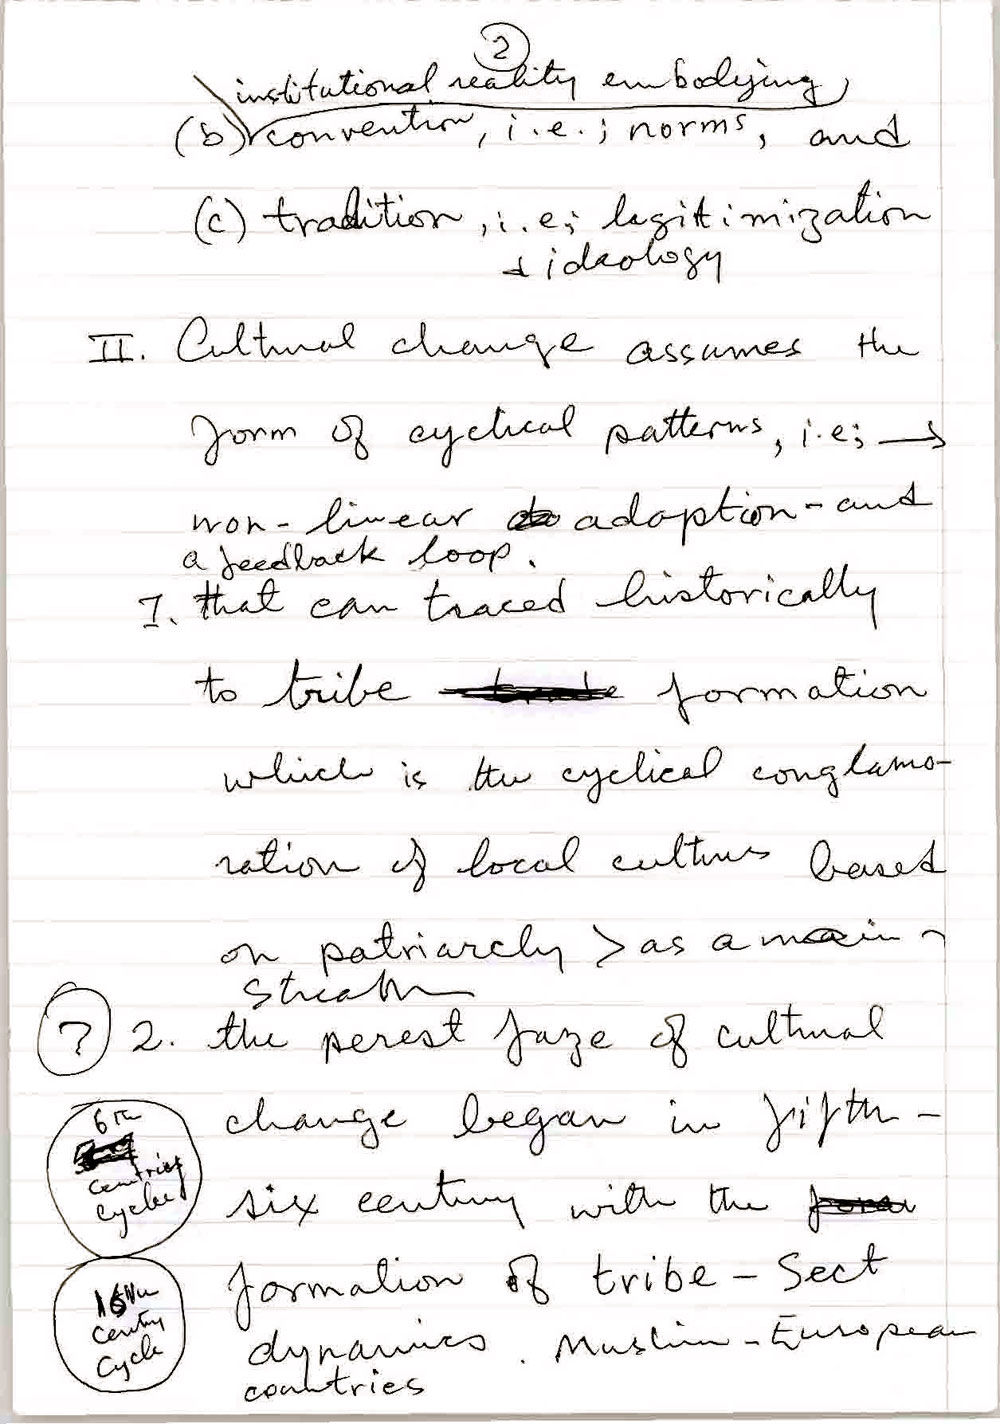 2
institutional reality embodying
(b) convention, i.e.; norms, and
(c) tradition, i.e; legitimization
+ ideology
II. Cultural change assumes the
form of cyclical patterns, i.e; →
non-linear adaption - and
a feedback loop.
I. that can traced historically
to tribe formation
which is the cyclical conglamo-
ration of local cultures based
on patriarchy > as a main -
stream
? 2. the perest faze of cultural
change began in fifth -
six century with the
formation of tribe - Sect
dynamics. Muslim - European
countries
6th
centries
cycles
16th
centry
cycle